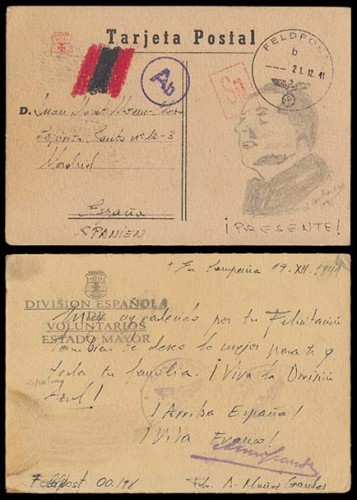 Tarjeta Postal
FELDPOST
b
21.12.41
Ab
D. Juan
Espíritu Santo nº 12-3
Madrid
España
SPANIEN
¡PRESENTE!
En Campaña 19-XII-1941
DIVISION ESPAÑOLA
DE
VOLUNTARIOS
ESTADO MAYOR
Muy agradecido por tu Felicitación
también te deseo lo mejor para ti y
toda tu familia. ¡Viva la División
Azul!
¡Arriba España!
¡Viva Franco!
Feldpost 00.
Fdo. A. Muñoz Grandes